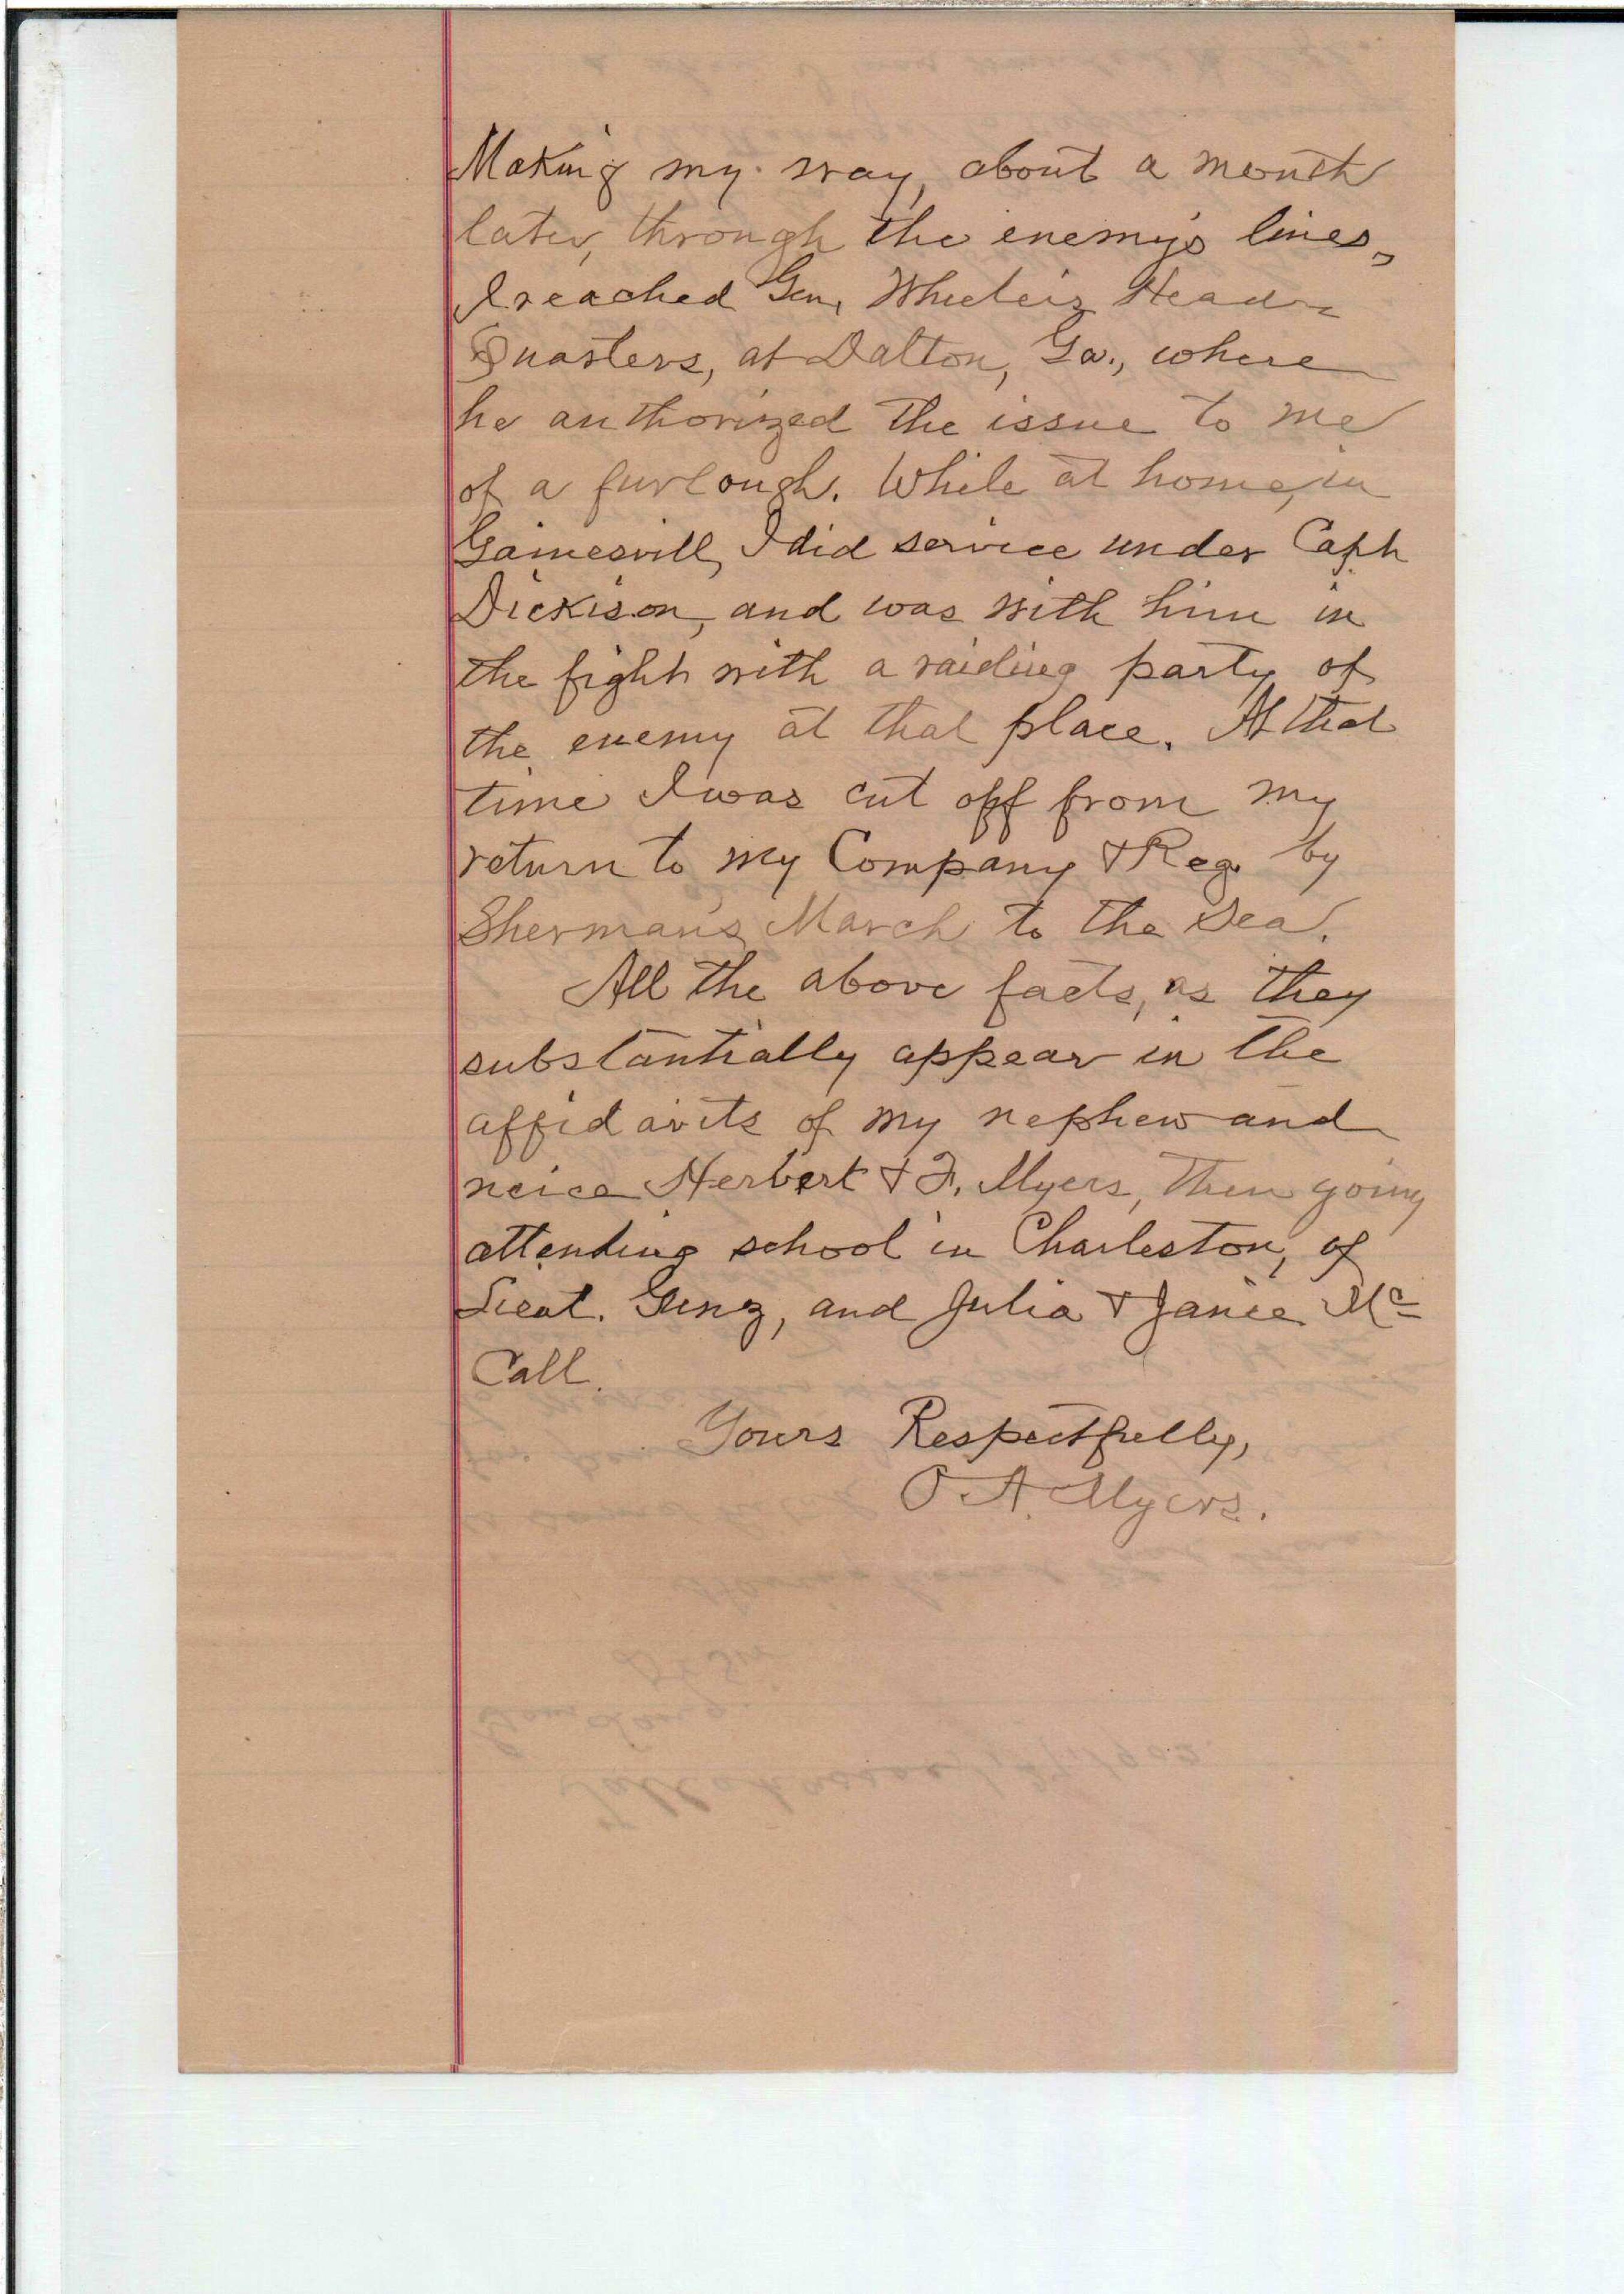 Making my way, about a month
later, through the enemy's lines,
I reached Gen. Wheeler's Head-
Quarters, at Dalton, Ga., where
he authorized the issue to me
of a furlough. While at home, in
Gainesvill, I did service under Capt
Dickison, and was with him in
the fight with a raiding party of
the enemy at that place. At that
time I was cut off from my
return to my Company & Reg. by
Sherman's March to the Sea.
All the above facts, as they
substantially appear in the
affidavits of my nephew and
neice Herbert & F. Myers, then going
attending school in Charleston, of
Lieut. , and Julia & Janie Mc
Call.
Yours Respectfully,
O. A. Myers.